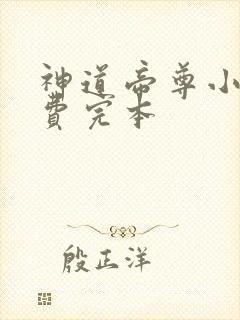 神道帝尊小
費完本
殷正洋